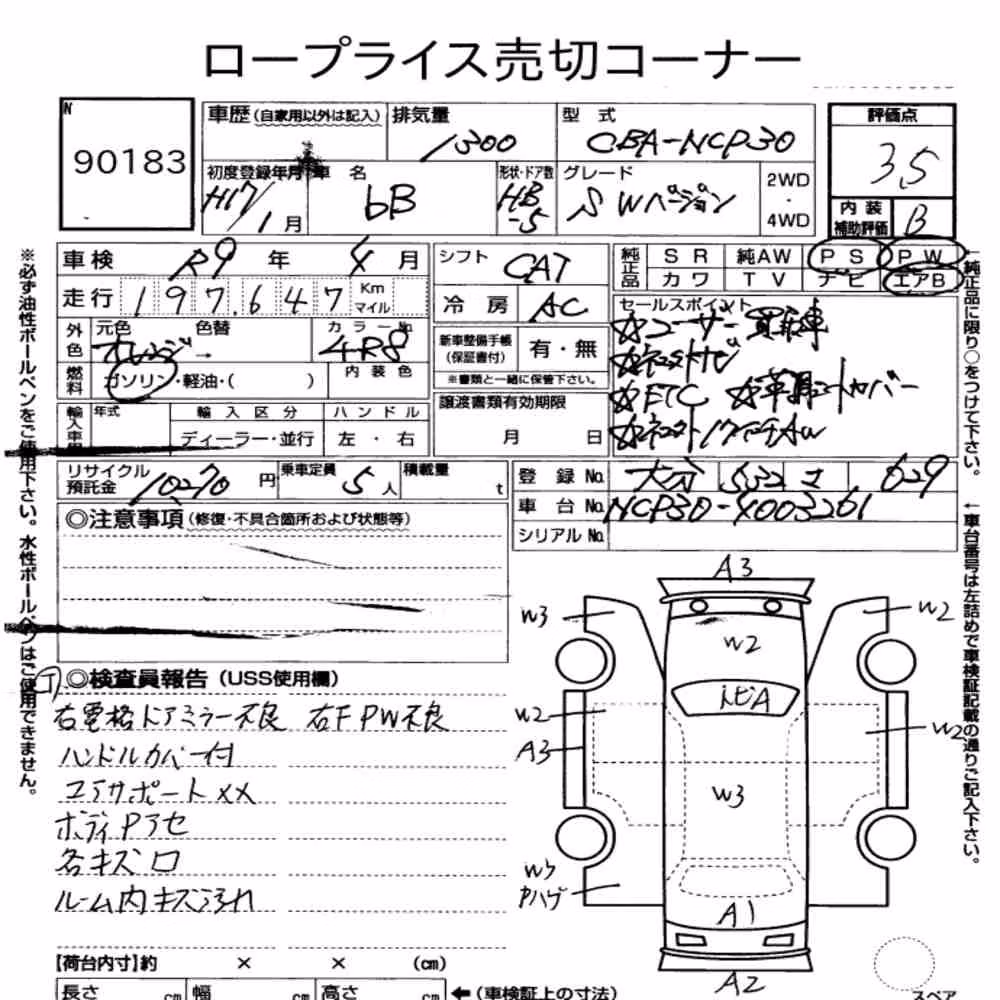 ロープライス売切コーナー
N
90183
車歴 (自家用以外は記入)
排気量
1300
型 式
CBA-NCP30
評価点
3.5
初度登録年月
H17/1月
車 名
bB
形状・ドア数
HB-5
グレード
S Wバージョン
2WD
・
4WD
内装
補助評価
B
車検 R9 年 4 月
走行 197,647 Km マイル
シフト
CAT
冷房 AC
純正品
SR 純AW PS PW
カワ TV ナビ エアB
外色
元色 色替
オレンジ →
カラーNo.
4R8
燃料
ガソリン・軽油・( )
内装色
新車整備手帳
(保証書付)
有・無
※書類と一緒に保管下さい。
セールスポイント
☆ユーザー買取車
☆ETC
輸入車用
年式
輸入区分
ディーラー・並行
ハンドル
左・右
譲渡書類有効期限
月 日
リサイクル
預託金
10270 円
乗車定員
5人
積載量
t
登録No. 大分 532 さ 629
車台No. NCP30-4003261
シリアルNo.
◎注意事項 (修復・不具合箇所および状態等)
◎検査員報告 (USS使用欄)
右電格ドアミラー不良 右F PW不良
ハンドルカバー付
エアサポート××
ボディPアセ
各キズロ
ルーム内キズ汚れ
A3
W3
W2
W2
トビA
W2
A3
W2
W3
W3
Pハゲ
A1
A2
【荷台内寸】約 × × (cm)
長さ cm 幅 cm 高さ cm ←(車検証上の寸法)
スペア
※必ず油性ボールペンをご使用下さい。水性ボールペンはご使用できません。
←純正品に限り○をつけて下さい。
←車台番号は左詰めで車検証記載の通りご記入下さい。